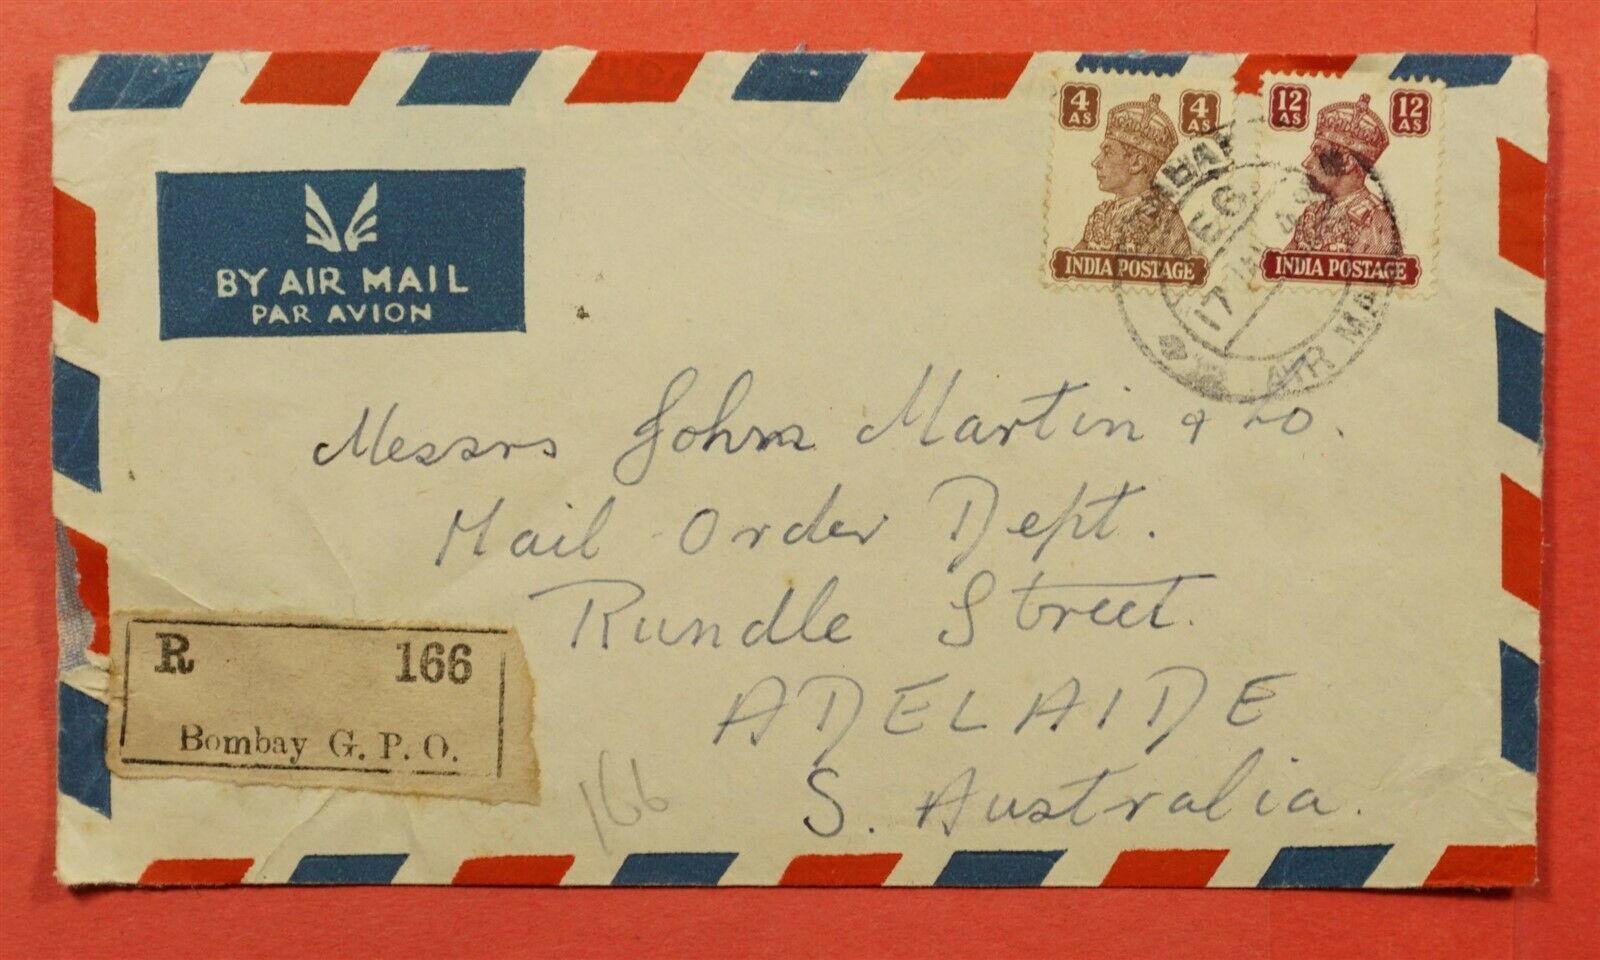 4 AS 4 AS
INDIA POSTAGE
12 AS 12 AS
INDIA POSTAGE
REG.
17 JA 48
AIR MA
BY AIR MAIL
PAR AVION
Messrs John Martin & Co.
Mail Order Dept.
Rundle Street.
ADELAIDE
S. Australia.
R 166
Bombay G. P. O.
166